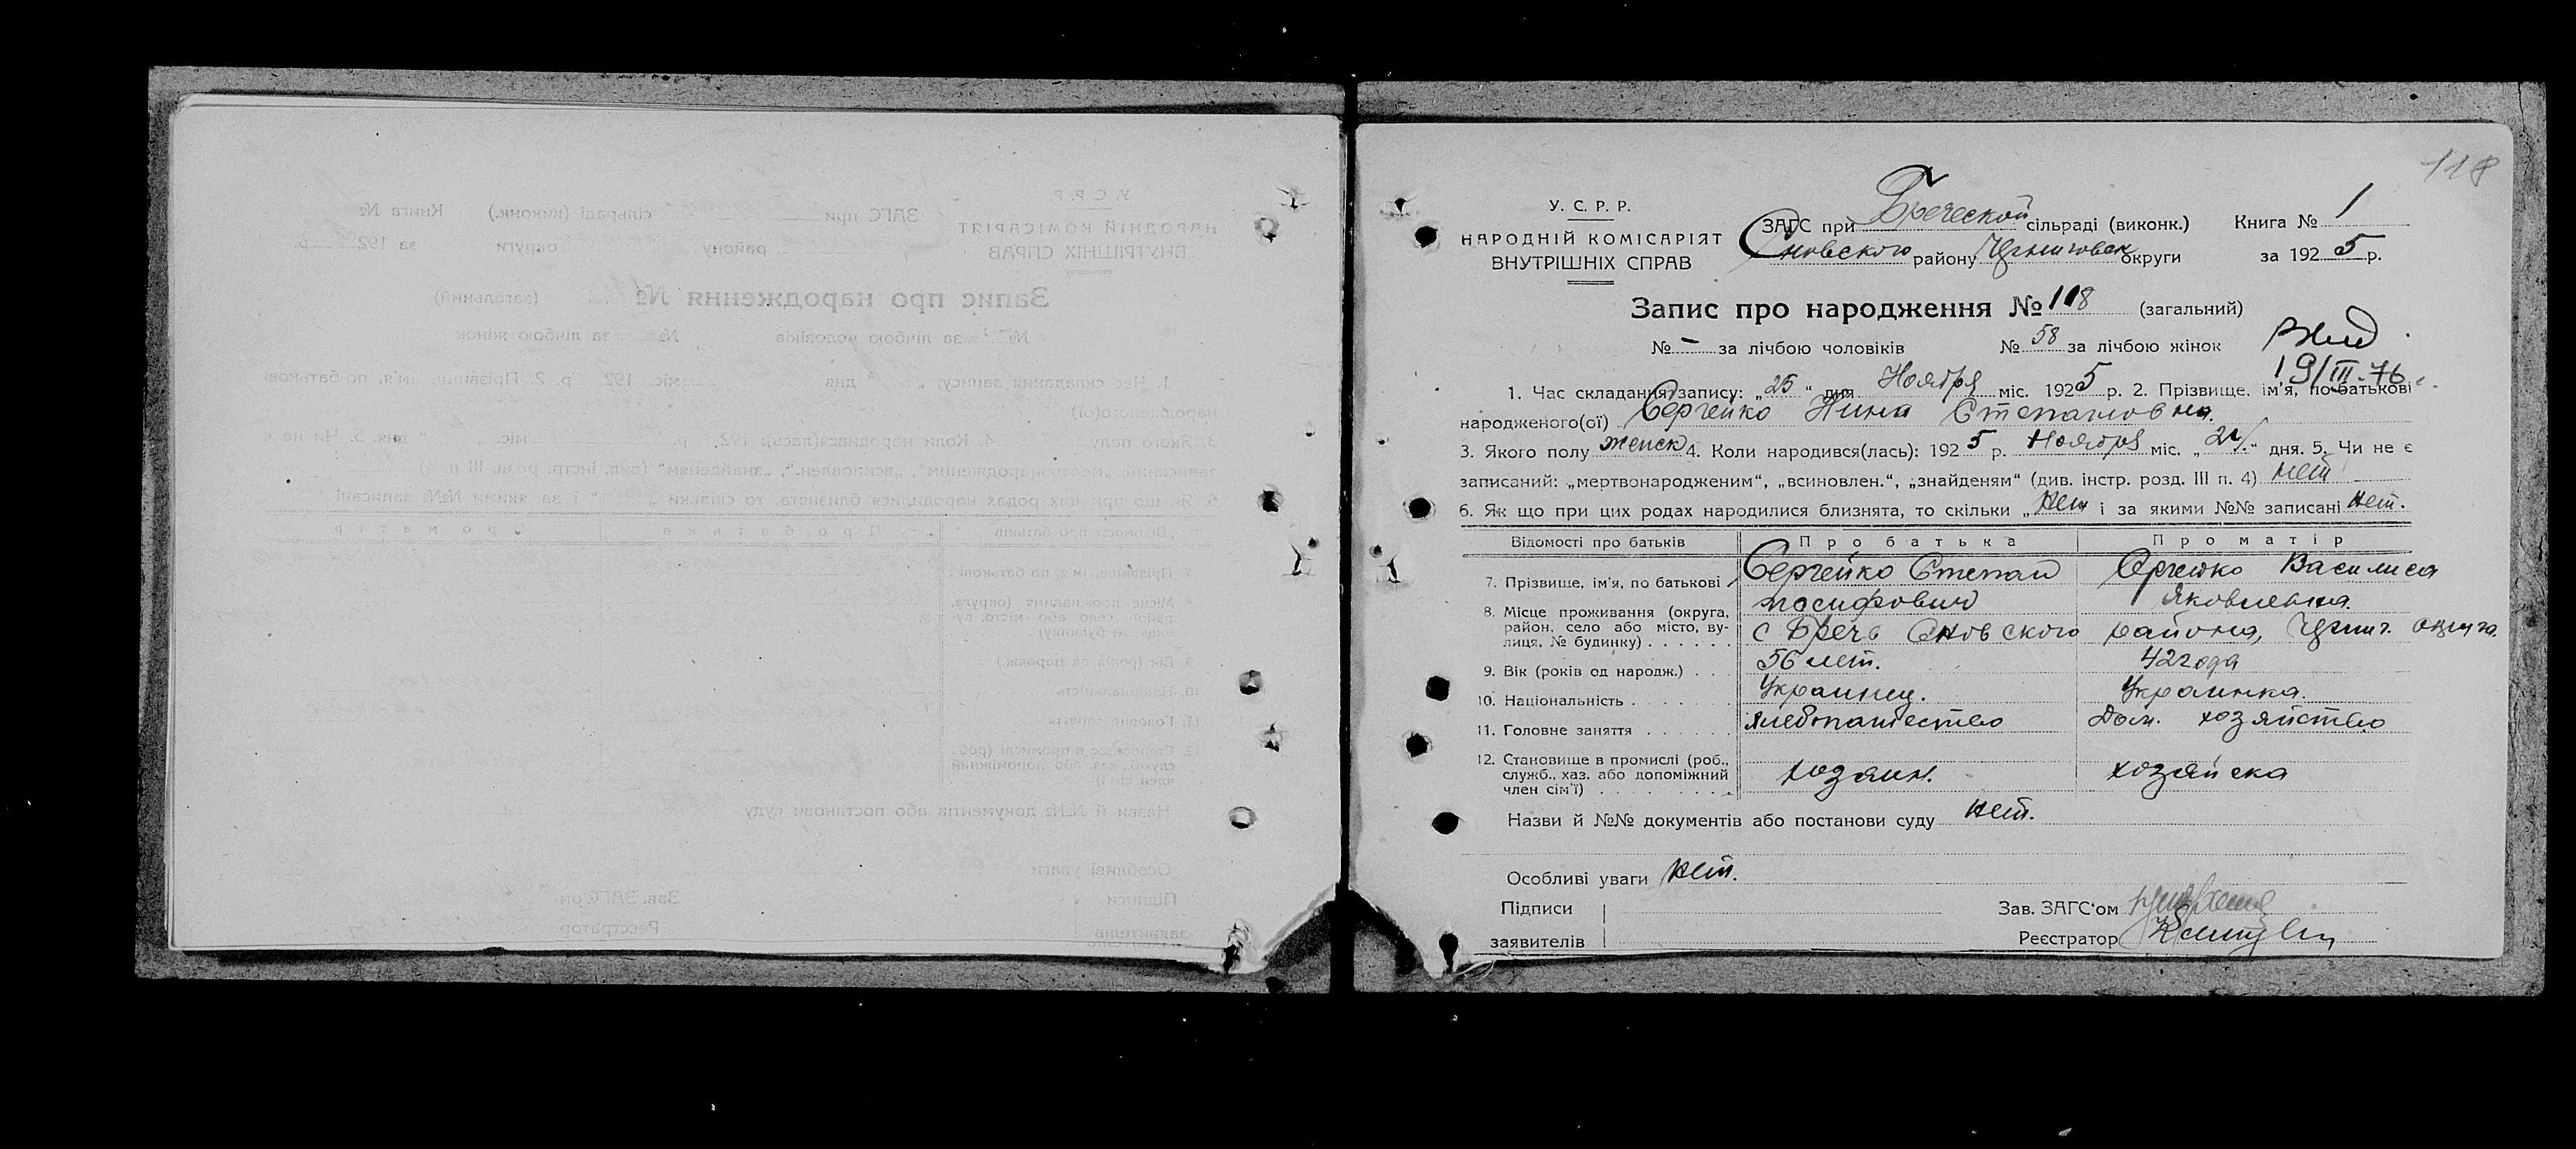 118
У. С. Р. Р.
НАРОДНІЙ КОМІСАРІЯТ
ВНУТРІШНІХ СПРАВ
ЗАГС при Бреческой сільраді (виконк.) Книга № 1
Сновского району Черниговск округи за 1925 р.
Запис про народження № 118 (загальний)
№ - за лічбою чоловіків № 58 за лічбою жінок
19/III-76 г.
1. Час складання запису: „25“ дня Ноября міс. 1925 р. 2. Прізвище, ім'я, по батькові
народженого(ої) Сергейко Нина Степановна.
3. Якого полу женск 4. Коли народився(лась): 1925 р. Ноября міс. „24“ дня. 5. Чи не є
записаний: „мертвонародженим“, „всиновлен.“, „знайденям“ (див. інстр. розд. III п. 4) нет
6. Як що при цих родах народилися близнята, то скільки „нет і за якими №№ записані нет.
Відомості про батьків Про батька Про матір
7. Прізвище, ім'я, по батькові Сергейко Степан Иосифович Сергейко Василиса Яковлевна.
8. Місце проживання (округа, район, село або місто, вулиця, № будинку) . . . . . . с Бречь Сновского района, Черниг. округа.
9. Вік (років од народж.) . . . 56 лет. 42 года
10. Національність . . . . . . . Украинец. Украинка.
11. Головне заняття . . . . . . хлебопашество Дом. хозяйство
12. Становище в промислі (роб., служб., хаз. або допоміжний член сім'ї) . . . . . . . . . хозяин. хозяйска
Назви й №№ документів або постанови суду нет.
Особливі уваги нет.
Підписи
заявителів
Зав. ЗАГС'ом
Реєстратор